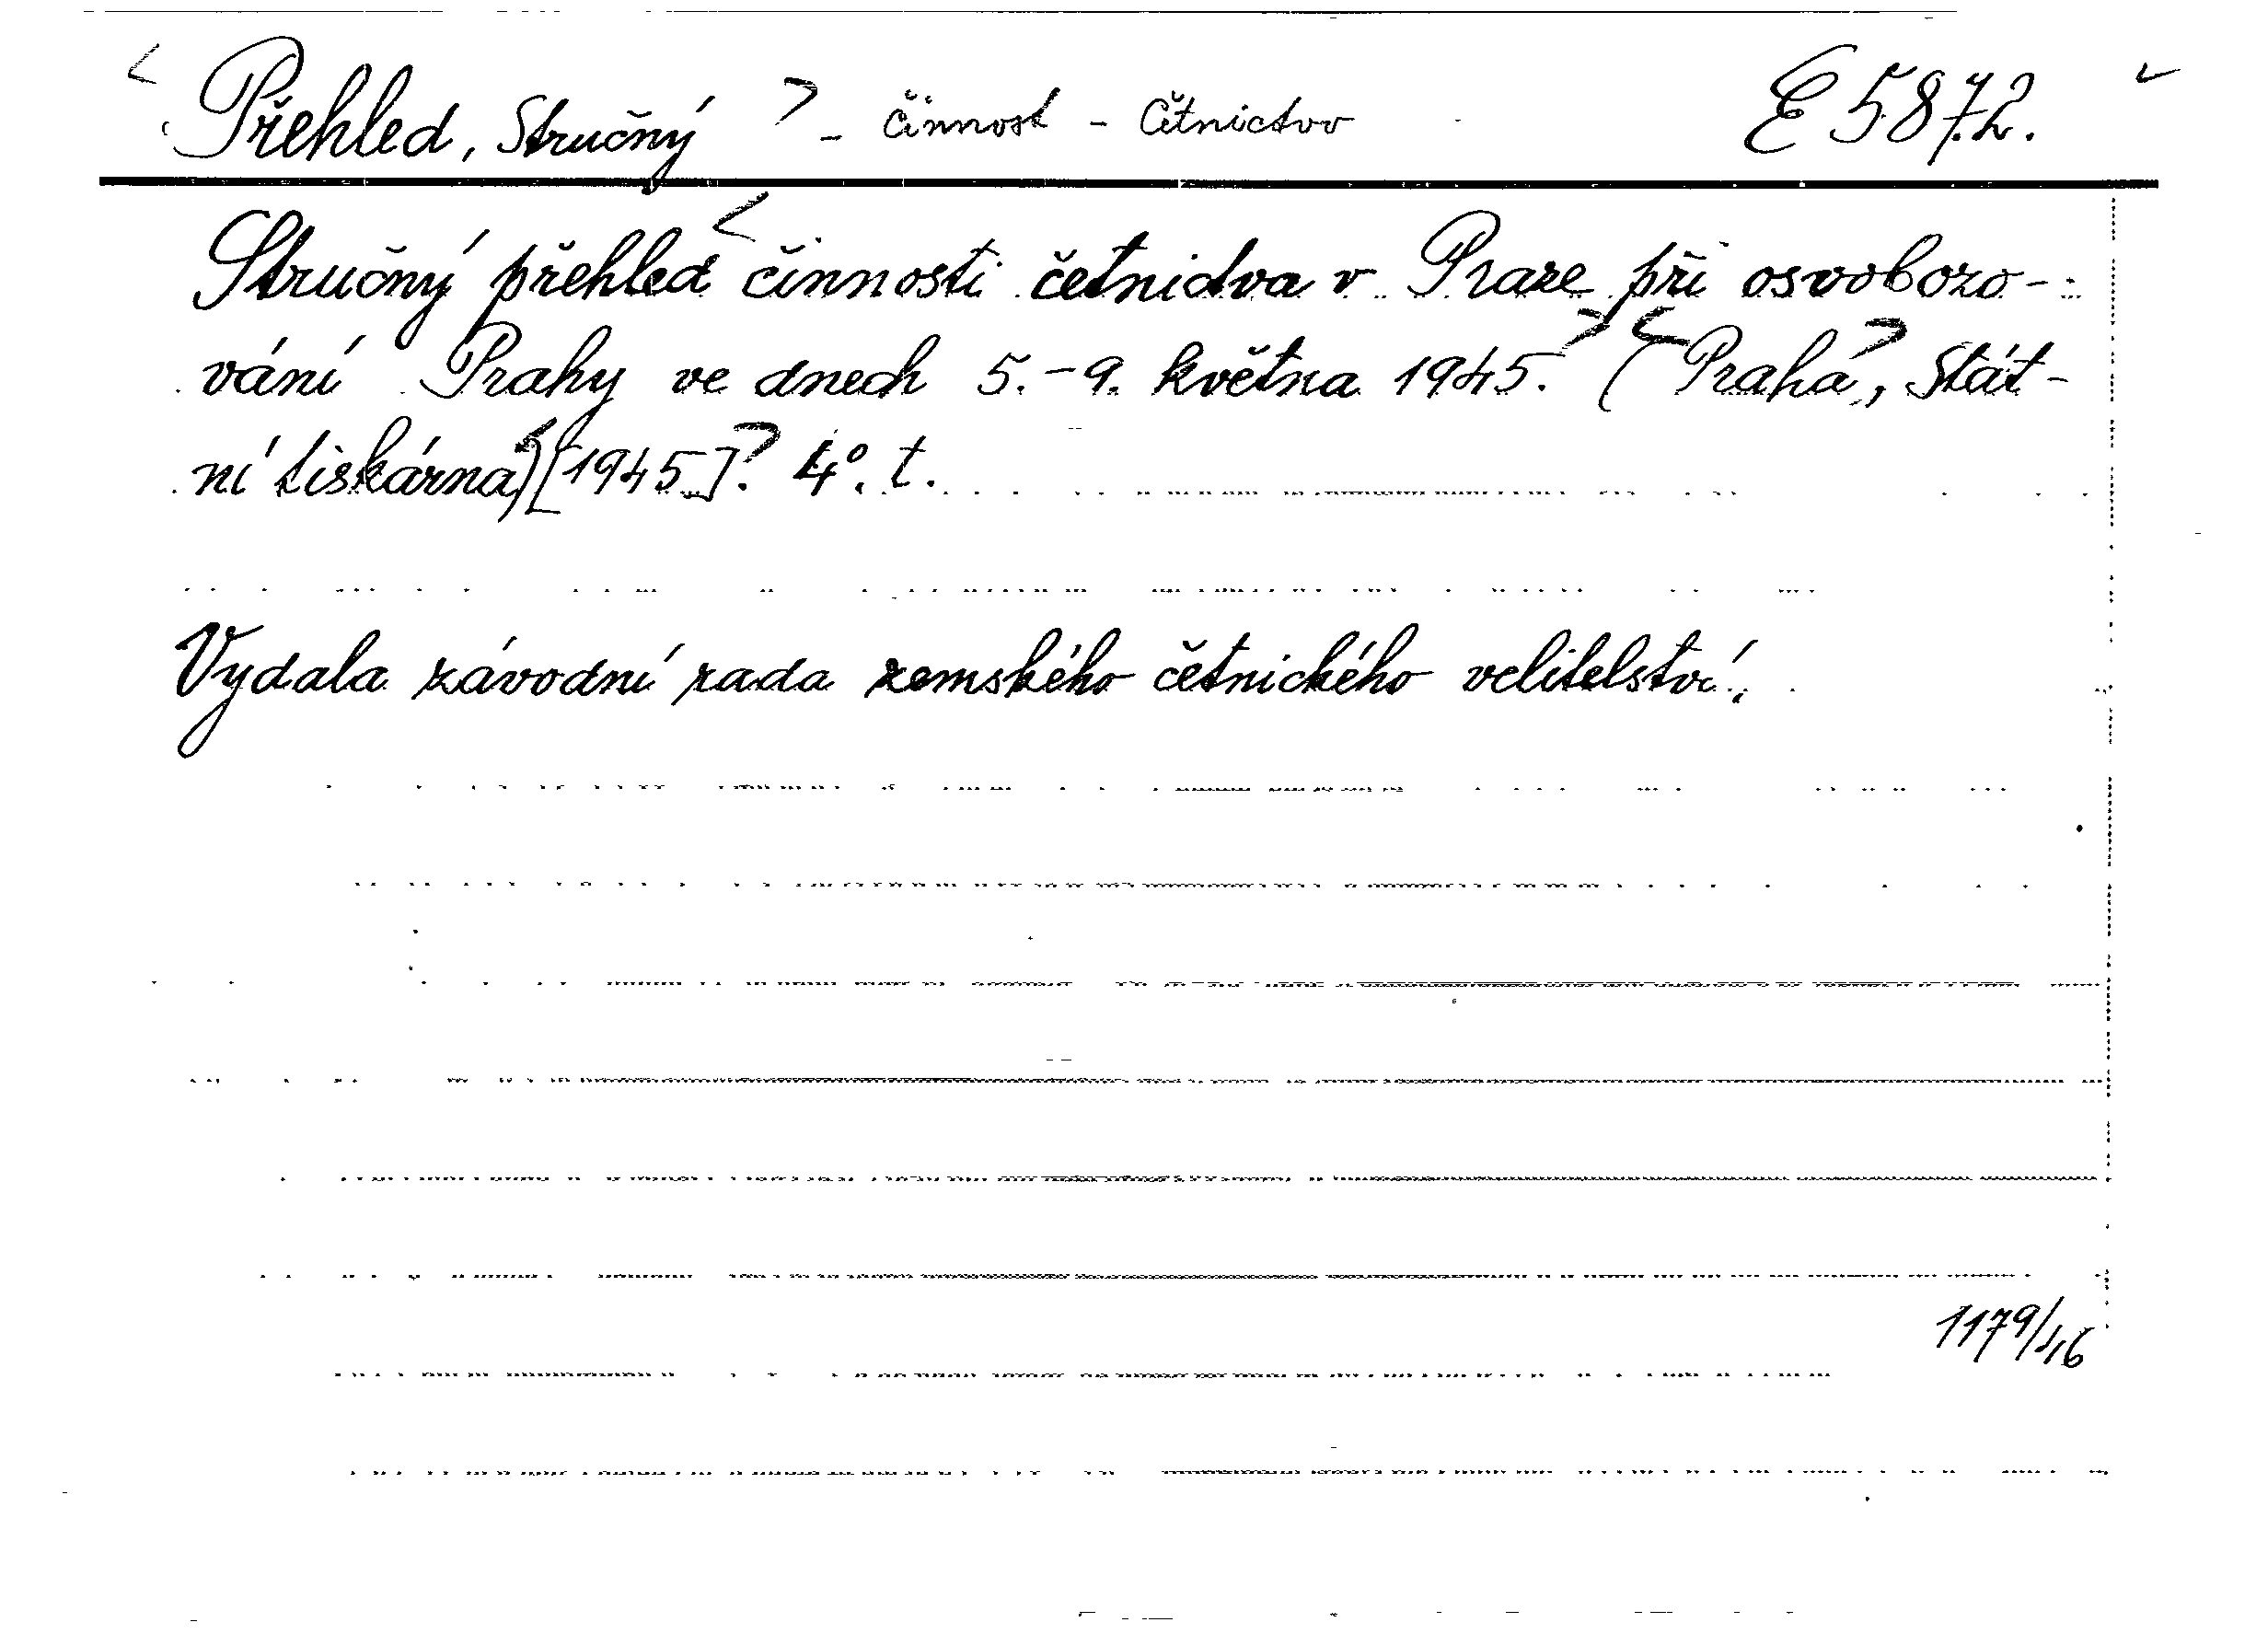 Přehled, Stručný - činnost - četnictvo E 5872.
Stručný přehled činnosti četnictva v Praze při osvobozo-
vání Prahy ve dnech 5.-9. května 1945. (Praha, Stát-
ní tiskárna) [1945]. 4°. t.
Vydala závodní rada zemského četnického velitelství.
1179/46